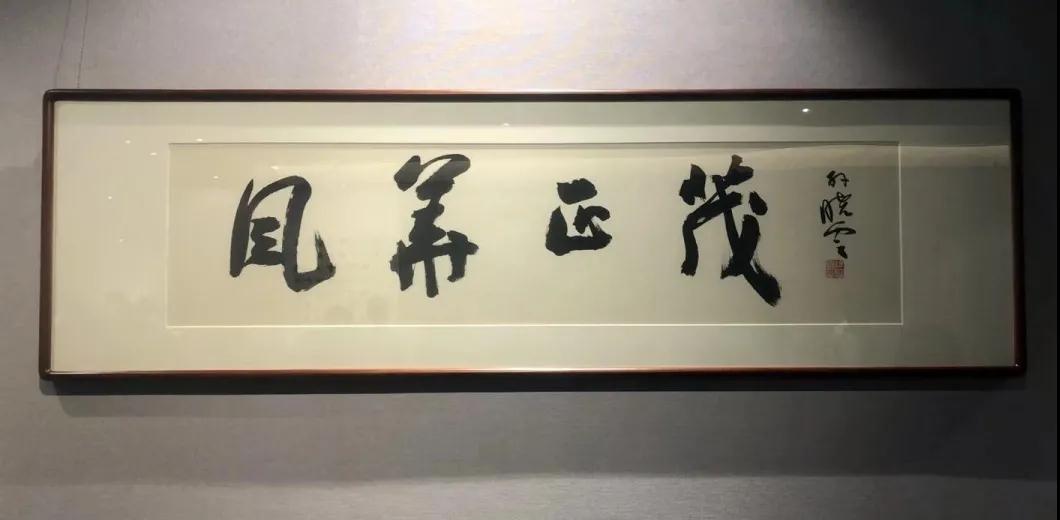 風華正茂
孫曉雲